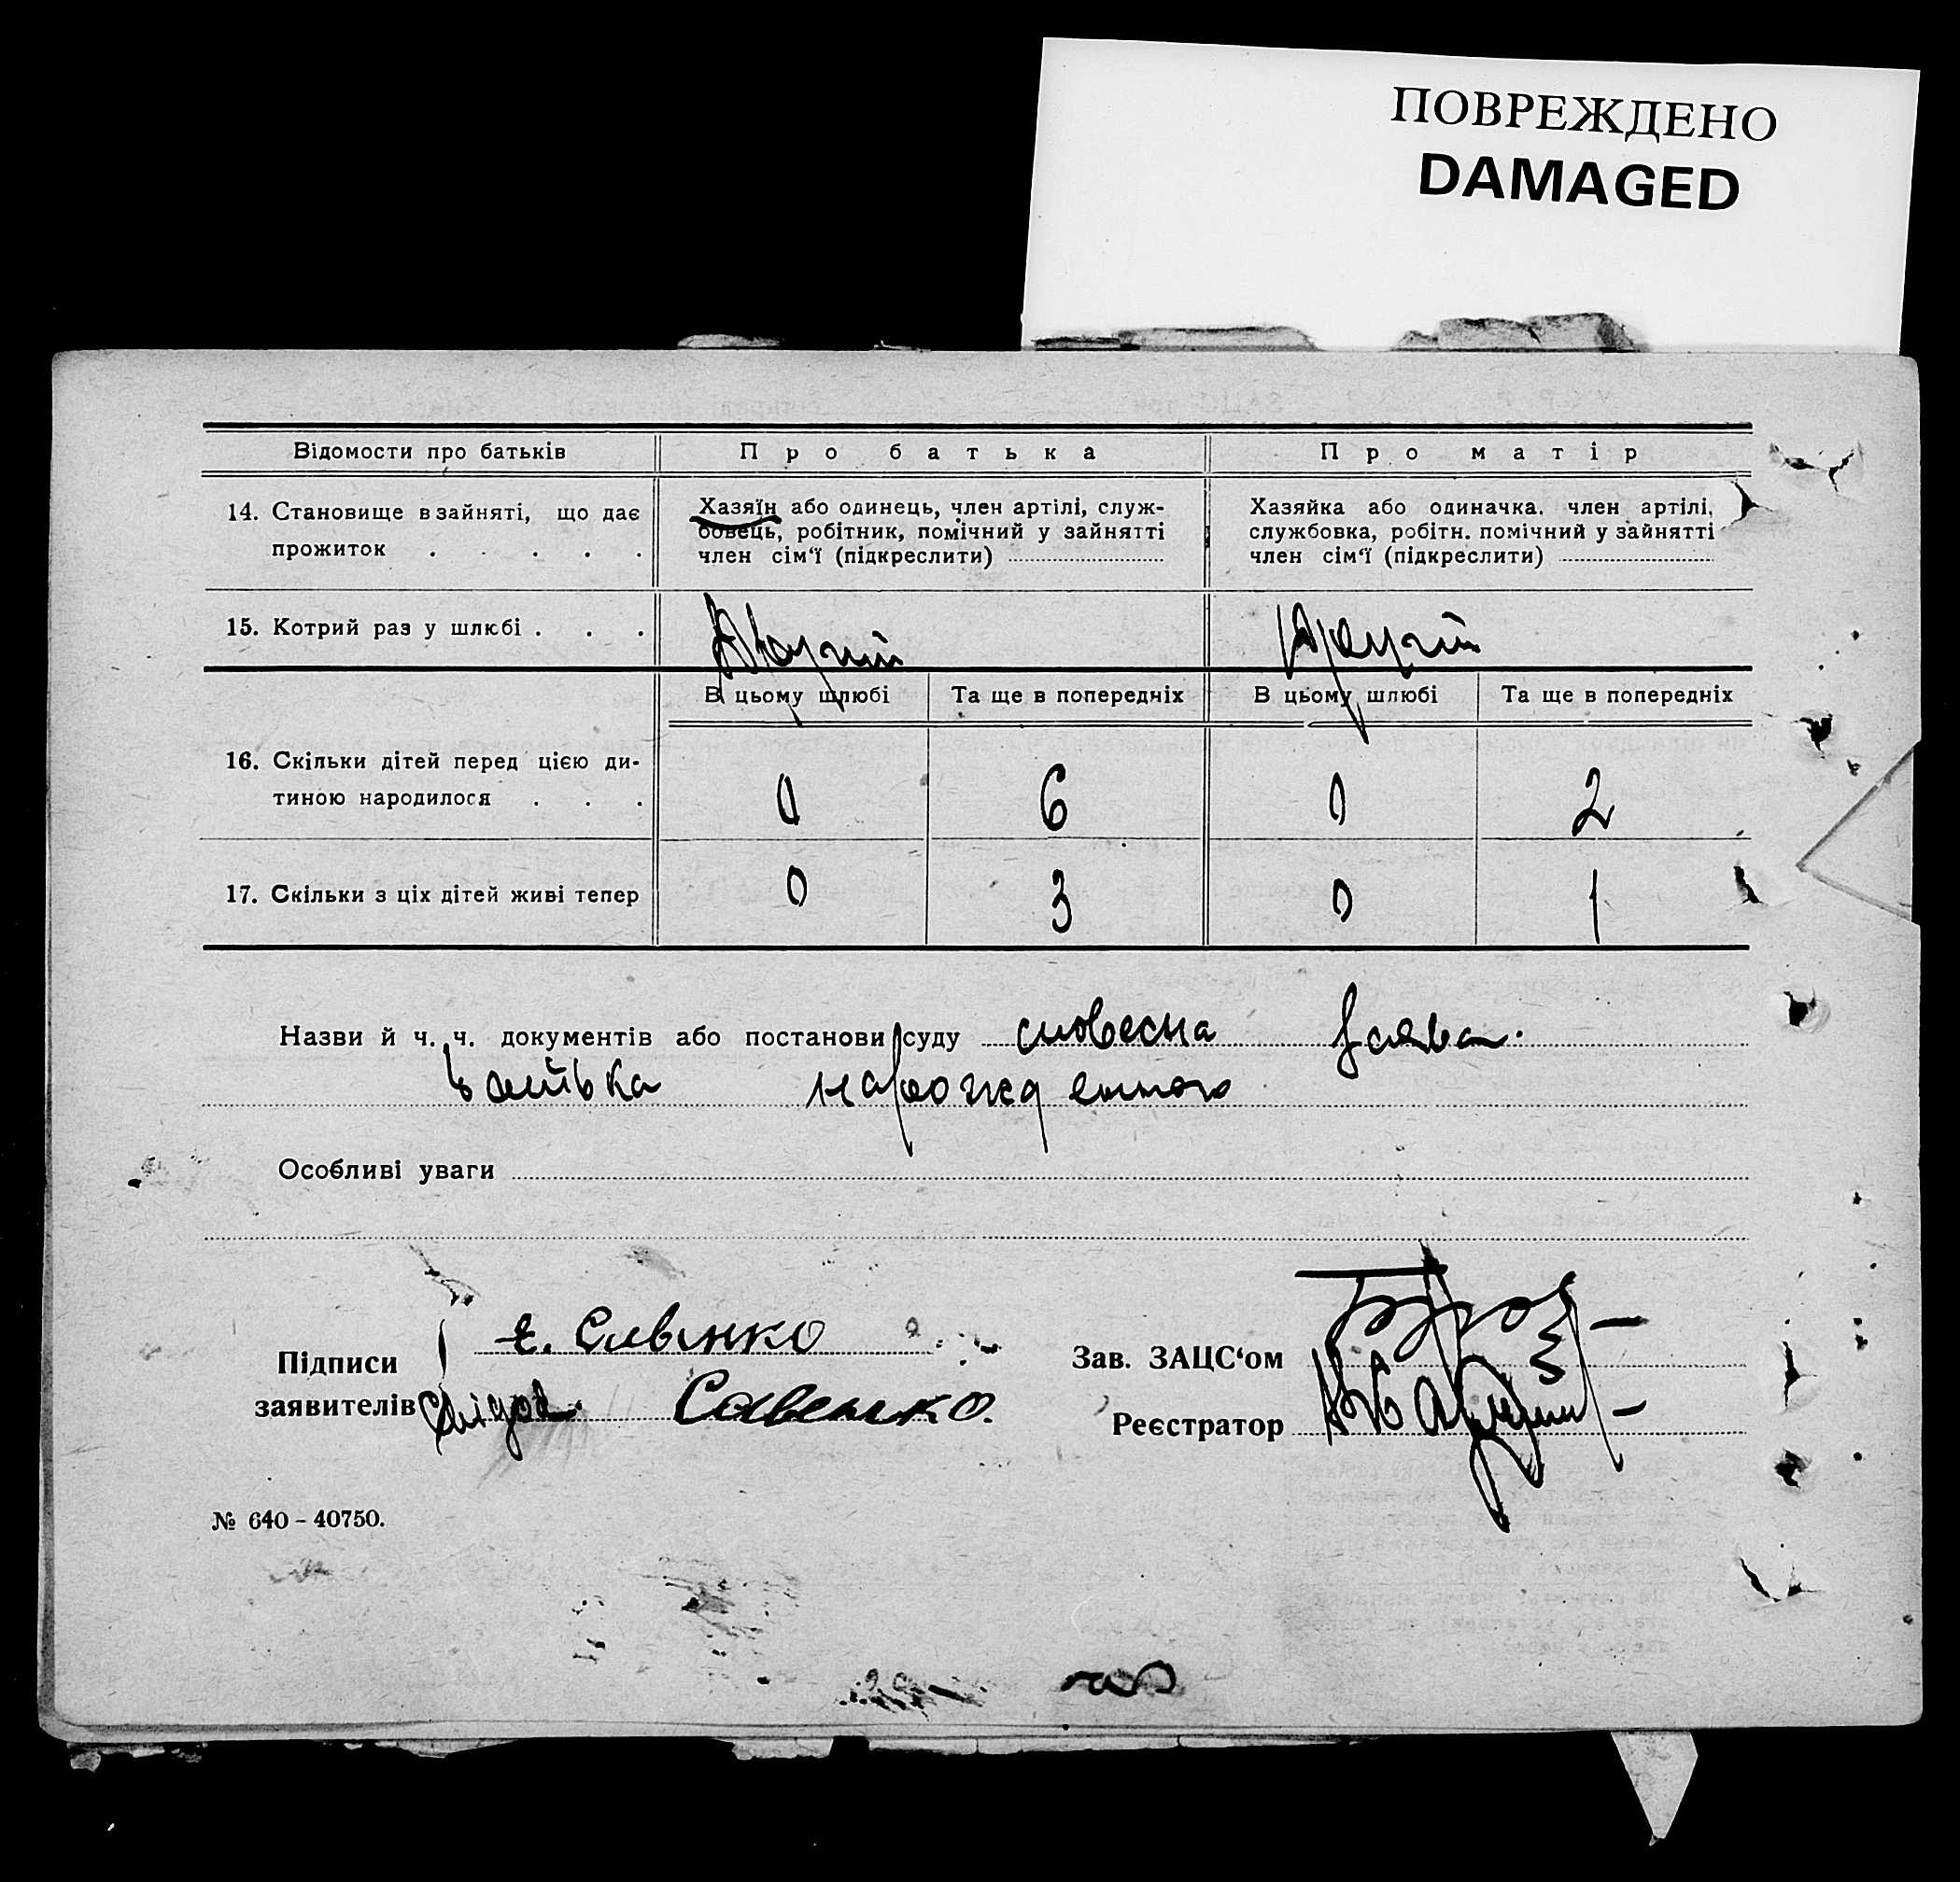 ПОВРЕЖДЕНО
DAMAGED
Відомости про батьків Про батька Про матір
14. Становище в зайняті, що дає прожиток . . . . .
Хазяїн або одинець, член артілі, служ-
бовець, робітник, помічний у зайнятті
член сім'ї (підкреслити)
Хазяйка або одиначка. член артілі,
службовка, робітн. помічний у зайнятті
член сім'ї (підкреслити)
15. Котрий раз у шлюбі . . . Другий Другий
В цьому шлюбі Та ще в попередніх В цьому шлюбі Та ще в попередніх
16. Скільки дітей перед цією ди-
тиною народилося . . . 0 6 0 2
17. Скільки з ціх дітей живі тепер 0 3 0 1
Назви й ч. ч. документів або постанови суду словесна заява.
батька народженного
Особливі уваги
Підписи
заявителів
Савенко.
Зав. ЗАЦС'ом
Реєстратор
№ 640 - 40750.